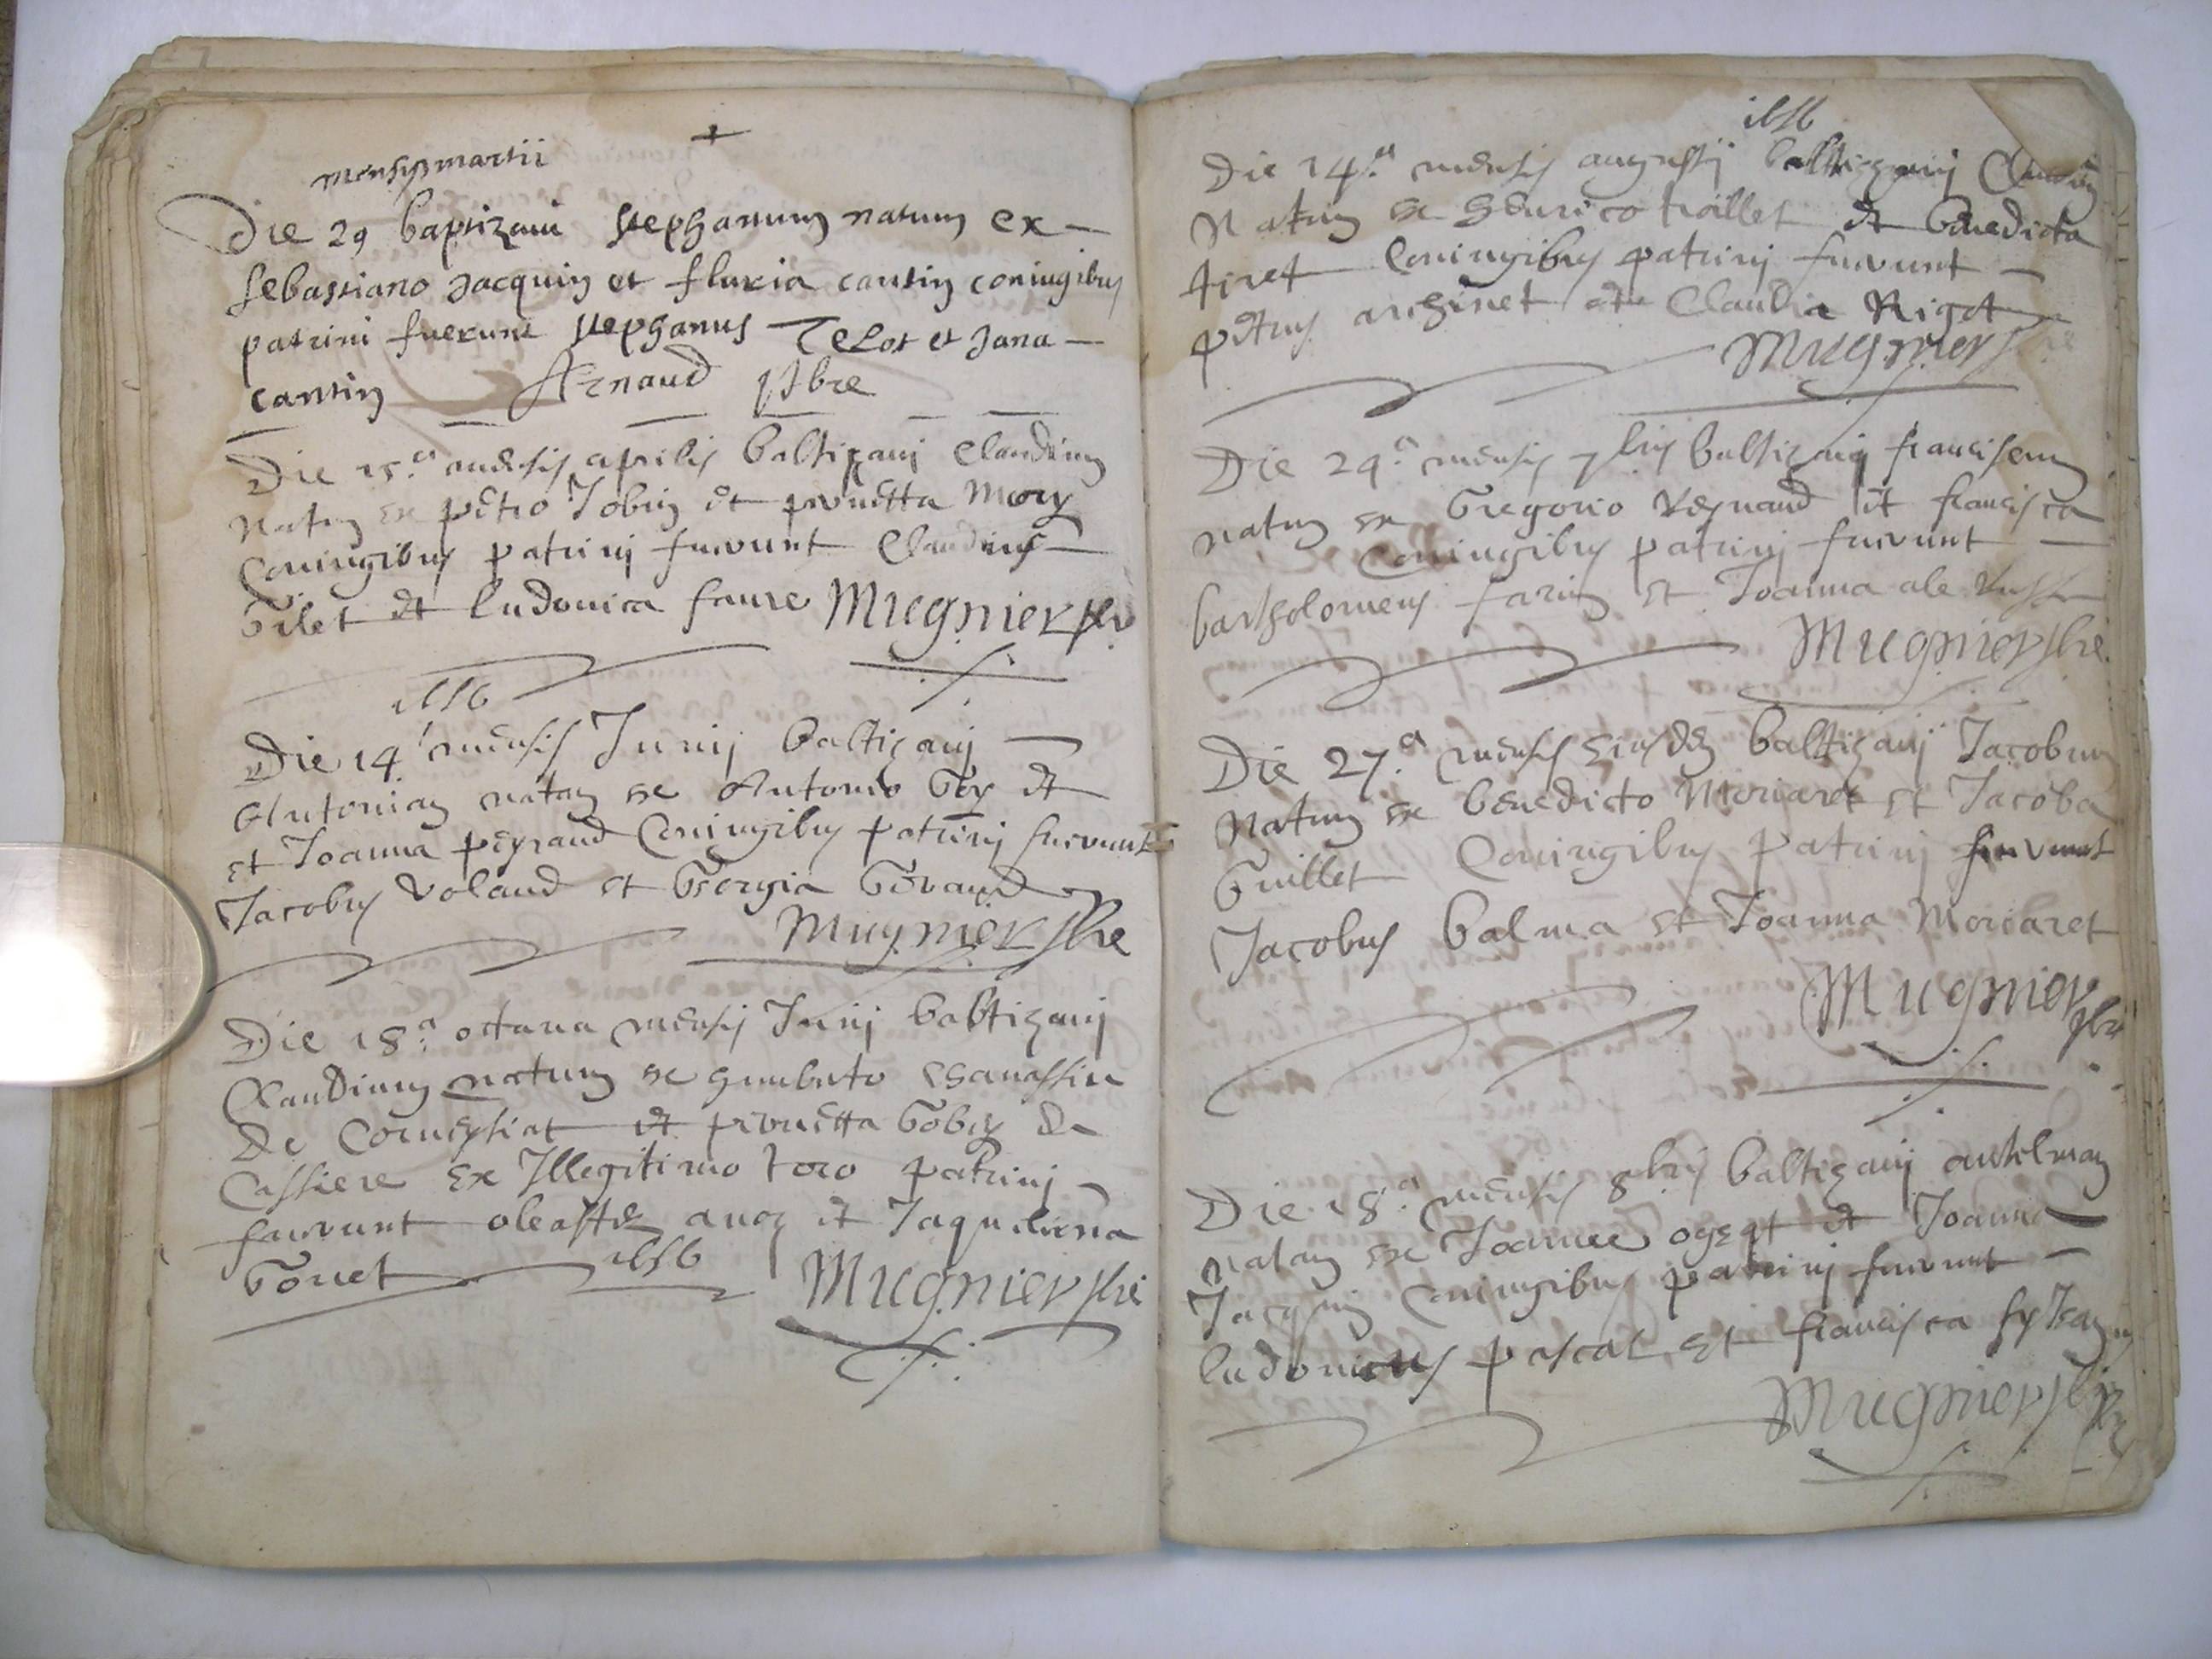 +
mensis martii
Die 29 baptizaui stephanum natum ex
sebastiano Jacquin et fluria cantin coniugibus
patrini fuerunt stephanus Telot et Jana
cantin Arnaud ptbre
Die 15.a mensis aprilis baltizauj Claudium
natum ex petro Jobin et peruetta Mory
Coniugibus patrinj fuerunt Claudius
Gilet et ludouica faure Mugnier pbr
1616
Die 14. mensis Junij baltizauj
Antoniam natam ex Antonio Goy et
et Joanna peyraud Coniugibus patrinj fuerunt
Jacobus Voland et Georgia Goraud
Mugnier pbre
Die 18.a octaua mensis Junij babtizauj
Claudium natum ex humberto
De et peruetta Gobey de
Cassiere ex Illegitimo toro patrinj
fuerunt et Jaquelina
Gouet 1616 Mugnier pbre
1616
Die 14.a mensis augustij baltizauij Claudium
Natum ex henrico troillet et benedicta
tiret Coniugibus patrinj fuerunt
petrus archinet et Claudia Rigot
Mugnier pbre
Die 29.a mensis 7bris baltizauij franciscum
natum ex Gregorio Reynaud et francisca
Coniugibus patrinj fuerunt
bartholomeus farin et Joanna ale
Mugnier pbre
Die 27.a mensis eiusdem baltizauij Jacobum
Natum ex benedicto Moriaret et Jacoba
Guillet Coniugibus patrinj fuerunt
Jacobus balma et Joanna Moriaret
Mugnier pbr
Die 18.a mensis 8bris baltizauij antelmam
natam ex Joanne ogeot et Joanna
Jacquin Coniugibus patrinj fuerunt
ludouicus pascal et francisca
Mugnier pbr